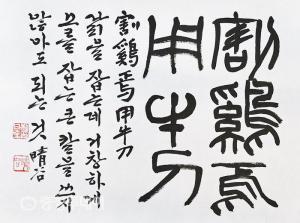 割鷄焉
用牛刀
割鷄焉用牛刀
닭을 잡는데 거창하게
소를 잡는 큰 칼을 쓰지
않아도 되는 것 晴谷